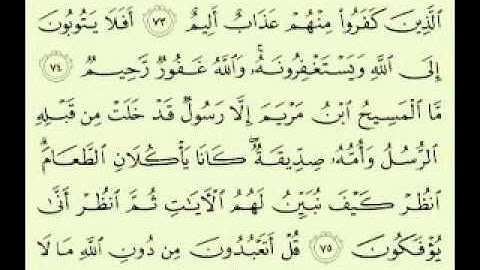 ٱلَّذِينَ كَفَرُوا۟ مِنْهُمْ عَذَابٌ أَلِيمٌ ٧٣ أَفَلَا يَتُوبُونَ
إِلَى ٱللَّهِ وَيَسْتَغْفِرُونَهُۥ ۚ وَٱللَّهُ غَفُورٌ رَّحِيمٌ ٧٤
مَّا ٱلْمَسِيحُ ٱبْنُ مَرْيَمَ إِلَّا رَسُولٌ قَدْ خَلَتْ مِن قَبْلِهِ
ٱلرُّسُلُ وَأُمُّهُۥ صِدِّيقَةٌ ۖ كَانَا يَأْكُلَانِ ٱلطَّعَامَ ۗ
ٱنظُرْ كَيْفَ نُبَيِّنُ لَهُمُ ٱلْـَٔايَـٰتِ ثُمَّ ٱنظُرْ أَنَّىٰ
يُؤْفَكُونَ ٧٥ قُلْ أَتَعْبُدُونَ مِن دُونِ ٱللَّهِ مَا لَا